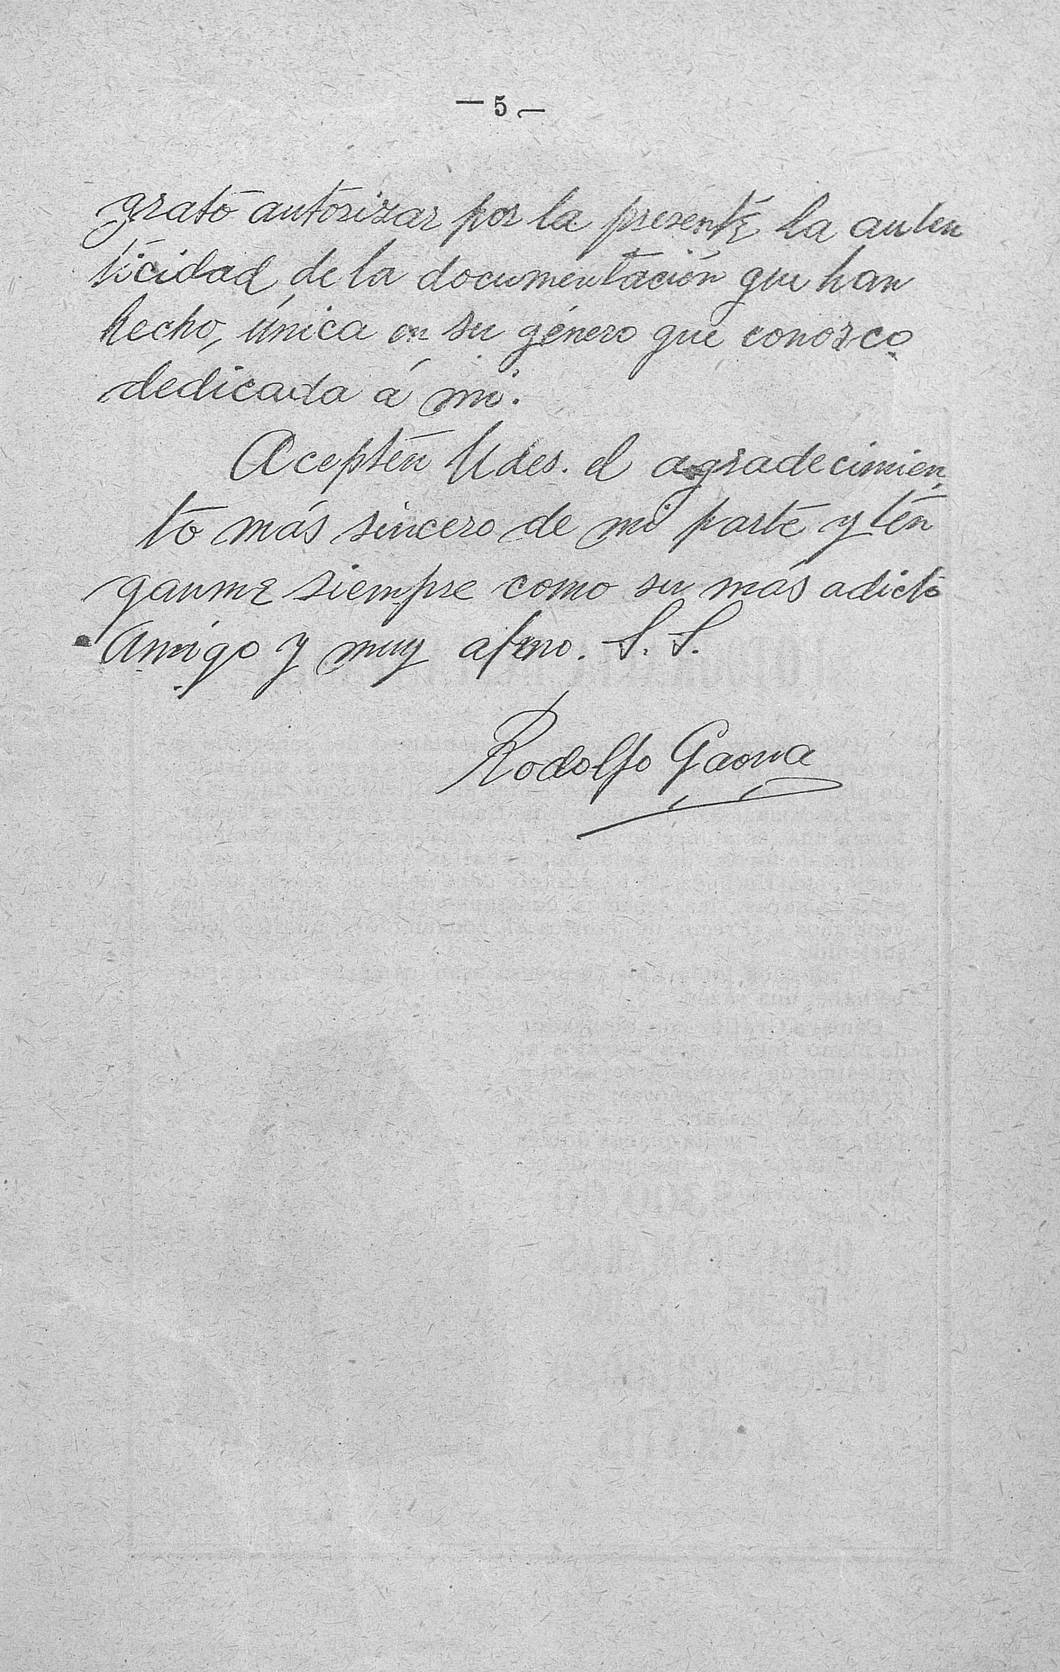 — 5 —
grato autorizar por la presente la auten
ticidad de la documentación que han
hecho, única en su género que conozco
dedicada á mi.
Acepten Udes. el agradecimien
to más sincero de mi parte y tén
ganme siempre como su más adicto
Amigo y muy afmo. S. S.
Rodolfo Gaona